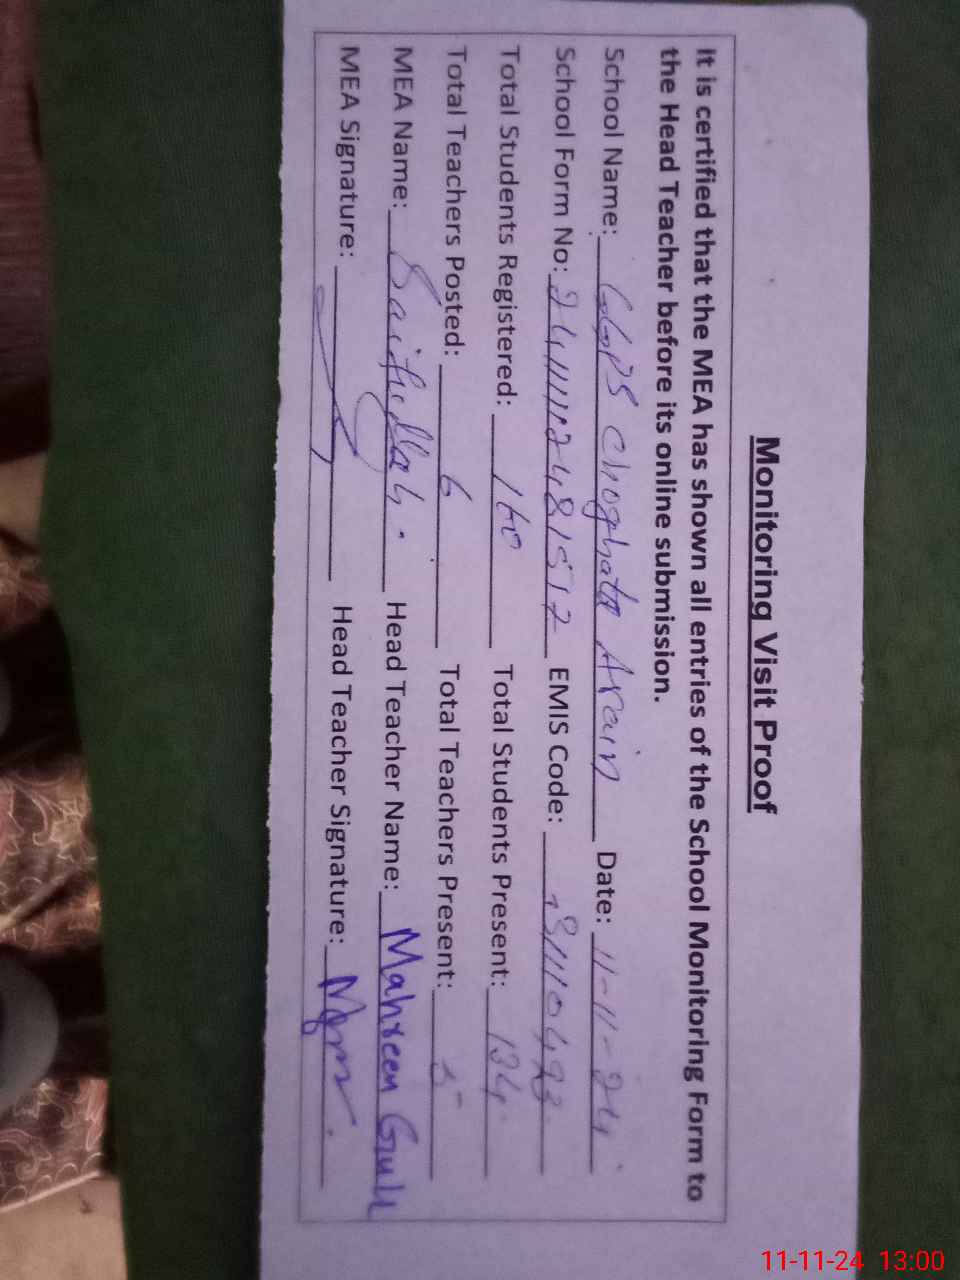 Monitoring Visit Proof
It is certified that the MEA has shown all entries of the School Monitoring Form to
the Head Teacher before its online submission.
School Name: GGPS Choghata Arain Date: 11-11-24
School Form No: EMIS Code:
Total Students Registered: 160 Total Students Present: 134
Total Teachers Posted: 6 Total Teachers Present: 5
MEA Name: Saifullah. Head Teacher Name: Mahreen Gull
MEA Signature: Head Teacher Signature:
11-11-24 13:00